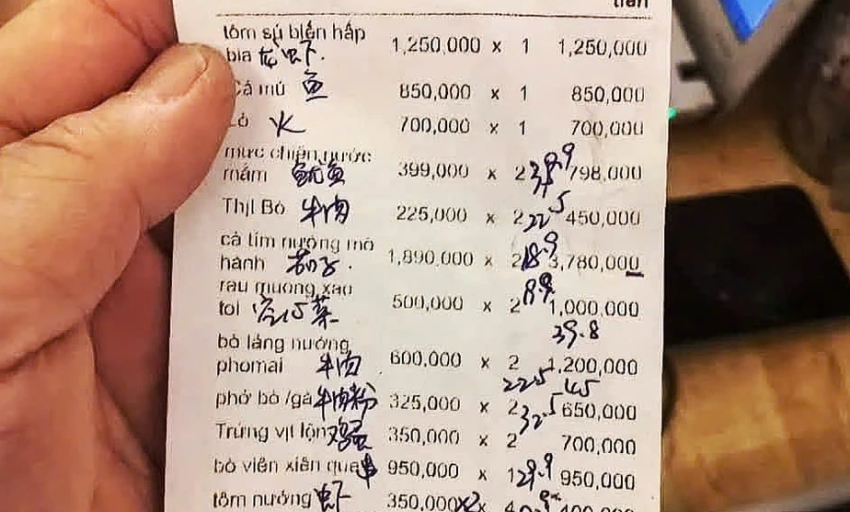 tiền
tôm sú biển hấp
bia 龙虾. 1,250,000 x 1 1,250,000
Cá mú 鱼 850,000 x 1 850,000
Lò 火 700,000 x 1 700,000
mực chiên nước
mắm 鱿鱼 399,000 x 2 39.9 798,000
Thịt Bò 牛肉 225,000 x 2 22.5 450,000
cà tím nướng mỡ
hành 茄子. 1,890,000 x 2 18.9 3,780,000
rau muống xào
tỏi 空心菜 500,000 x 2 1,000,000
39.8
bò lảng nướng
phomai 牛肉 600,000 x 2 1,200,000
22.5 45
phở bò /gà 牛肉粉 325,000 x 2 650,000
32.5
Trứng vịt lộn 鸡蛋 350,000 x 2 700,000
bò viên xiên que 串 950,000 x 1 29.9 950,000
tôm nướng 虾 350,000 x2 x